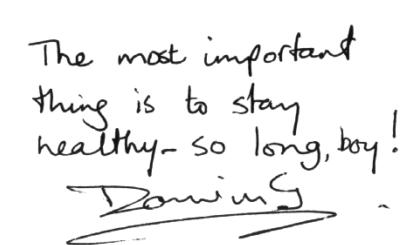 The most important
thing is to stay
healthy- so long, boy!